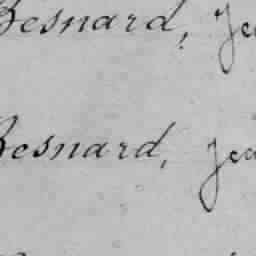 Besnard, Jea
Besnard, Jea